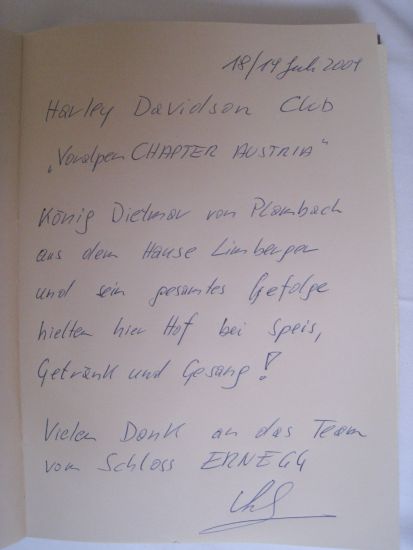 18/19 Juli 2009
Harley Davidson Club
„Voralpen CHAPTER AUSTRIA"
König Dietmar von Plambach
aus dem Hause Limberger
und sein gesamtes Gefolge
hielten hier Hof bei Speis,
Getränk und Gesang!
Vielen Dank an das Team
vom Schloss ERNEGG